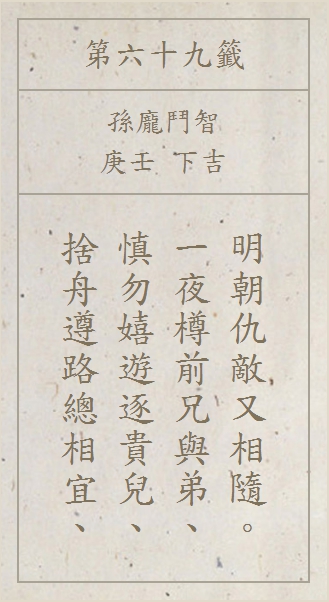 第六十九籤
孫龐鬥智
庚壬 下吉
捨舟遵路總相宜、
慎勿嬉遊逐貴兒、
一夜樽前兄與弟、
明朝仇敵又相隨。